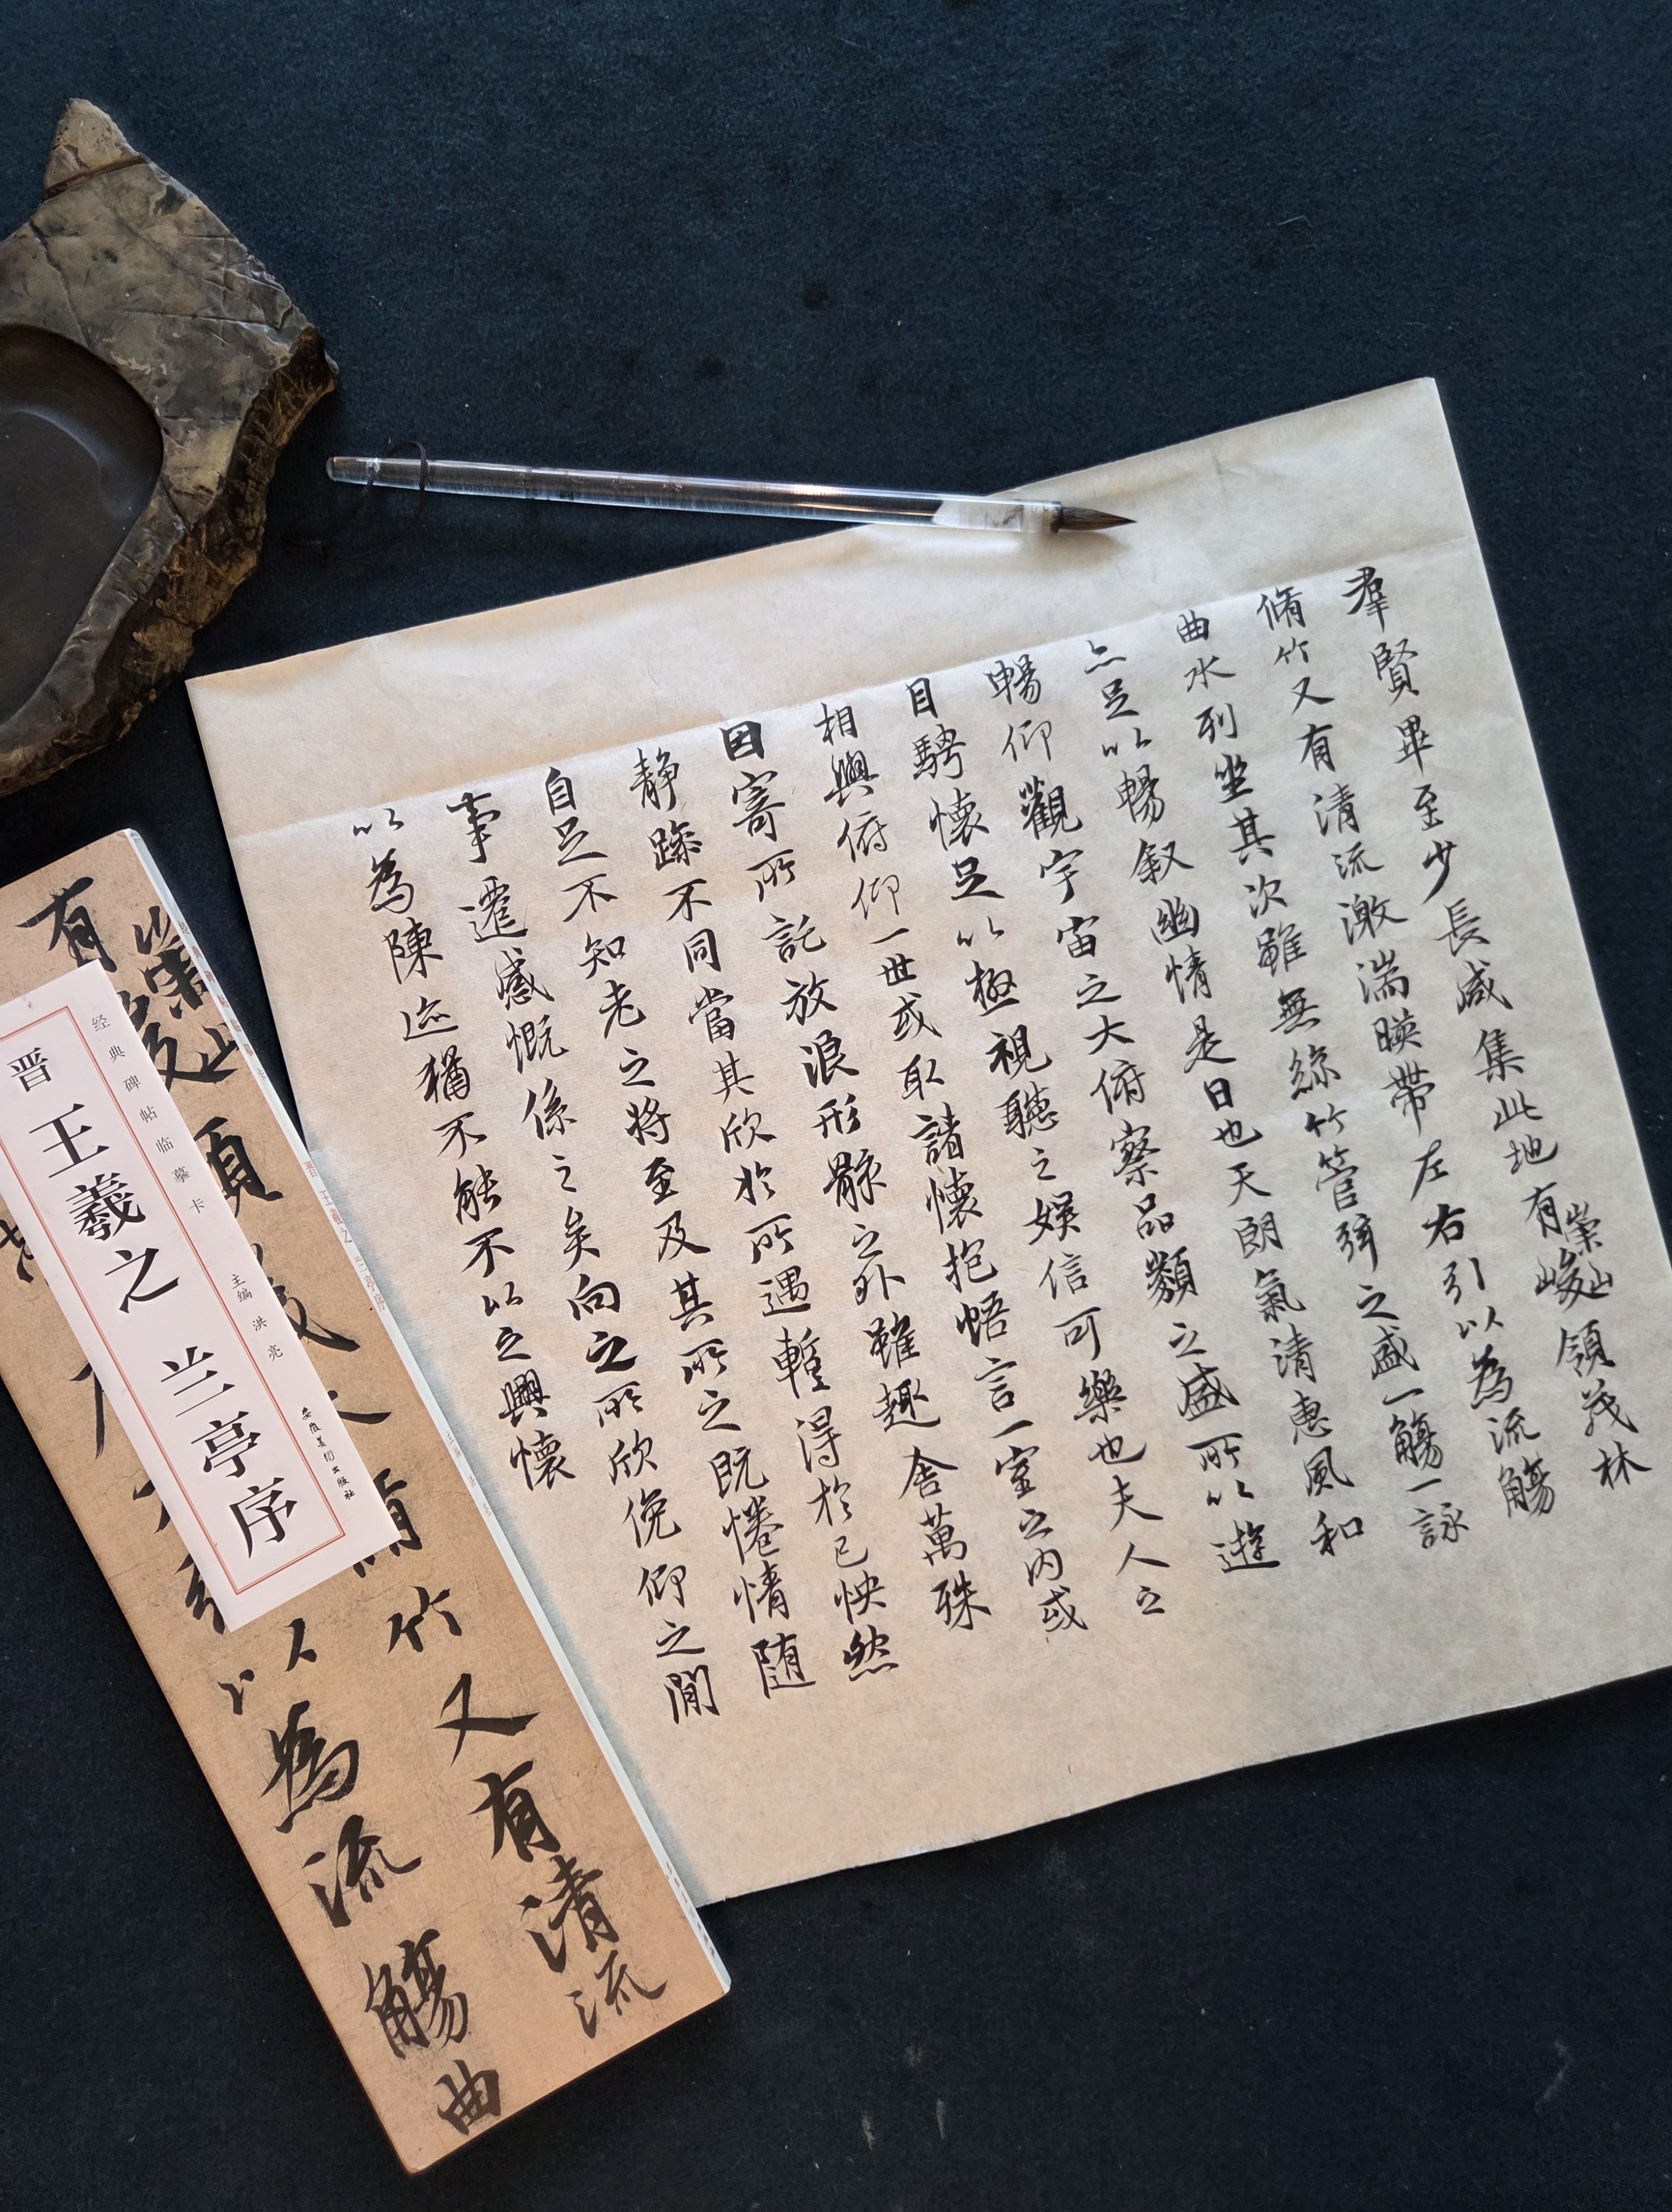 羣賢畢至少長咸集此地有崇峻山領茂林
脩竹又有清流激湍暎帶左右引以為流觴
曲水列坐其次雖無絲竹管弦之盛一觴一詠
亦足以暢叙幽情是日也天朗氣清惠風和
暢仰觀宇宙之大俯察品類之盛所以遊
目騁懷足以極視聽之娛信可樂也夫人之
相與俯仰一世或取諸懷抱悟言一室之內或
因寄所託放浪形骸之外雖趣舍萬殊
静躁不同當其欣於所遇暫得於己怏然
自足不知老之將至及其所之既惓情随
事遷感慨係之矣向之所欣俛仰之閒
以為陳迹猶不能不以之興懷
晋 王羲之 兰亭序
经典碑帖临摹卡
主编 洪亮
安徽美术出版社
晋 王羲之 兰亭序
竹又有清流
以為流觴曲